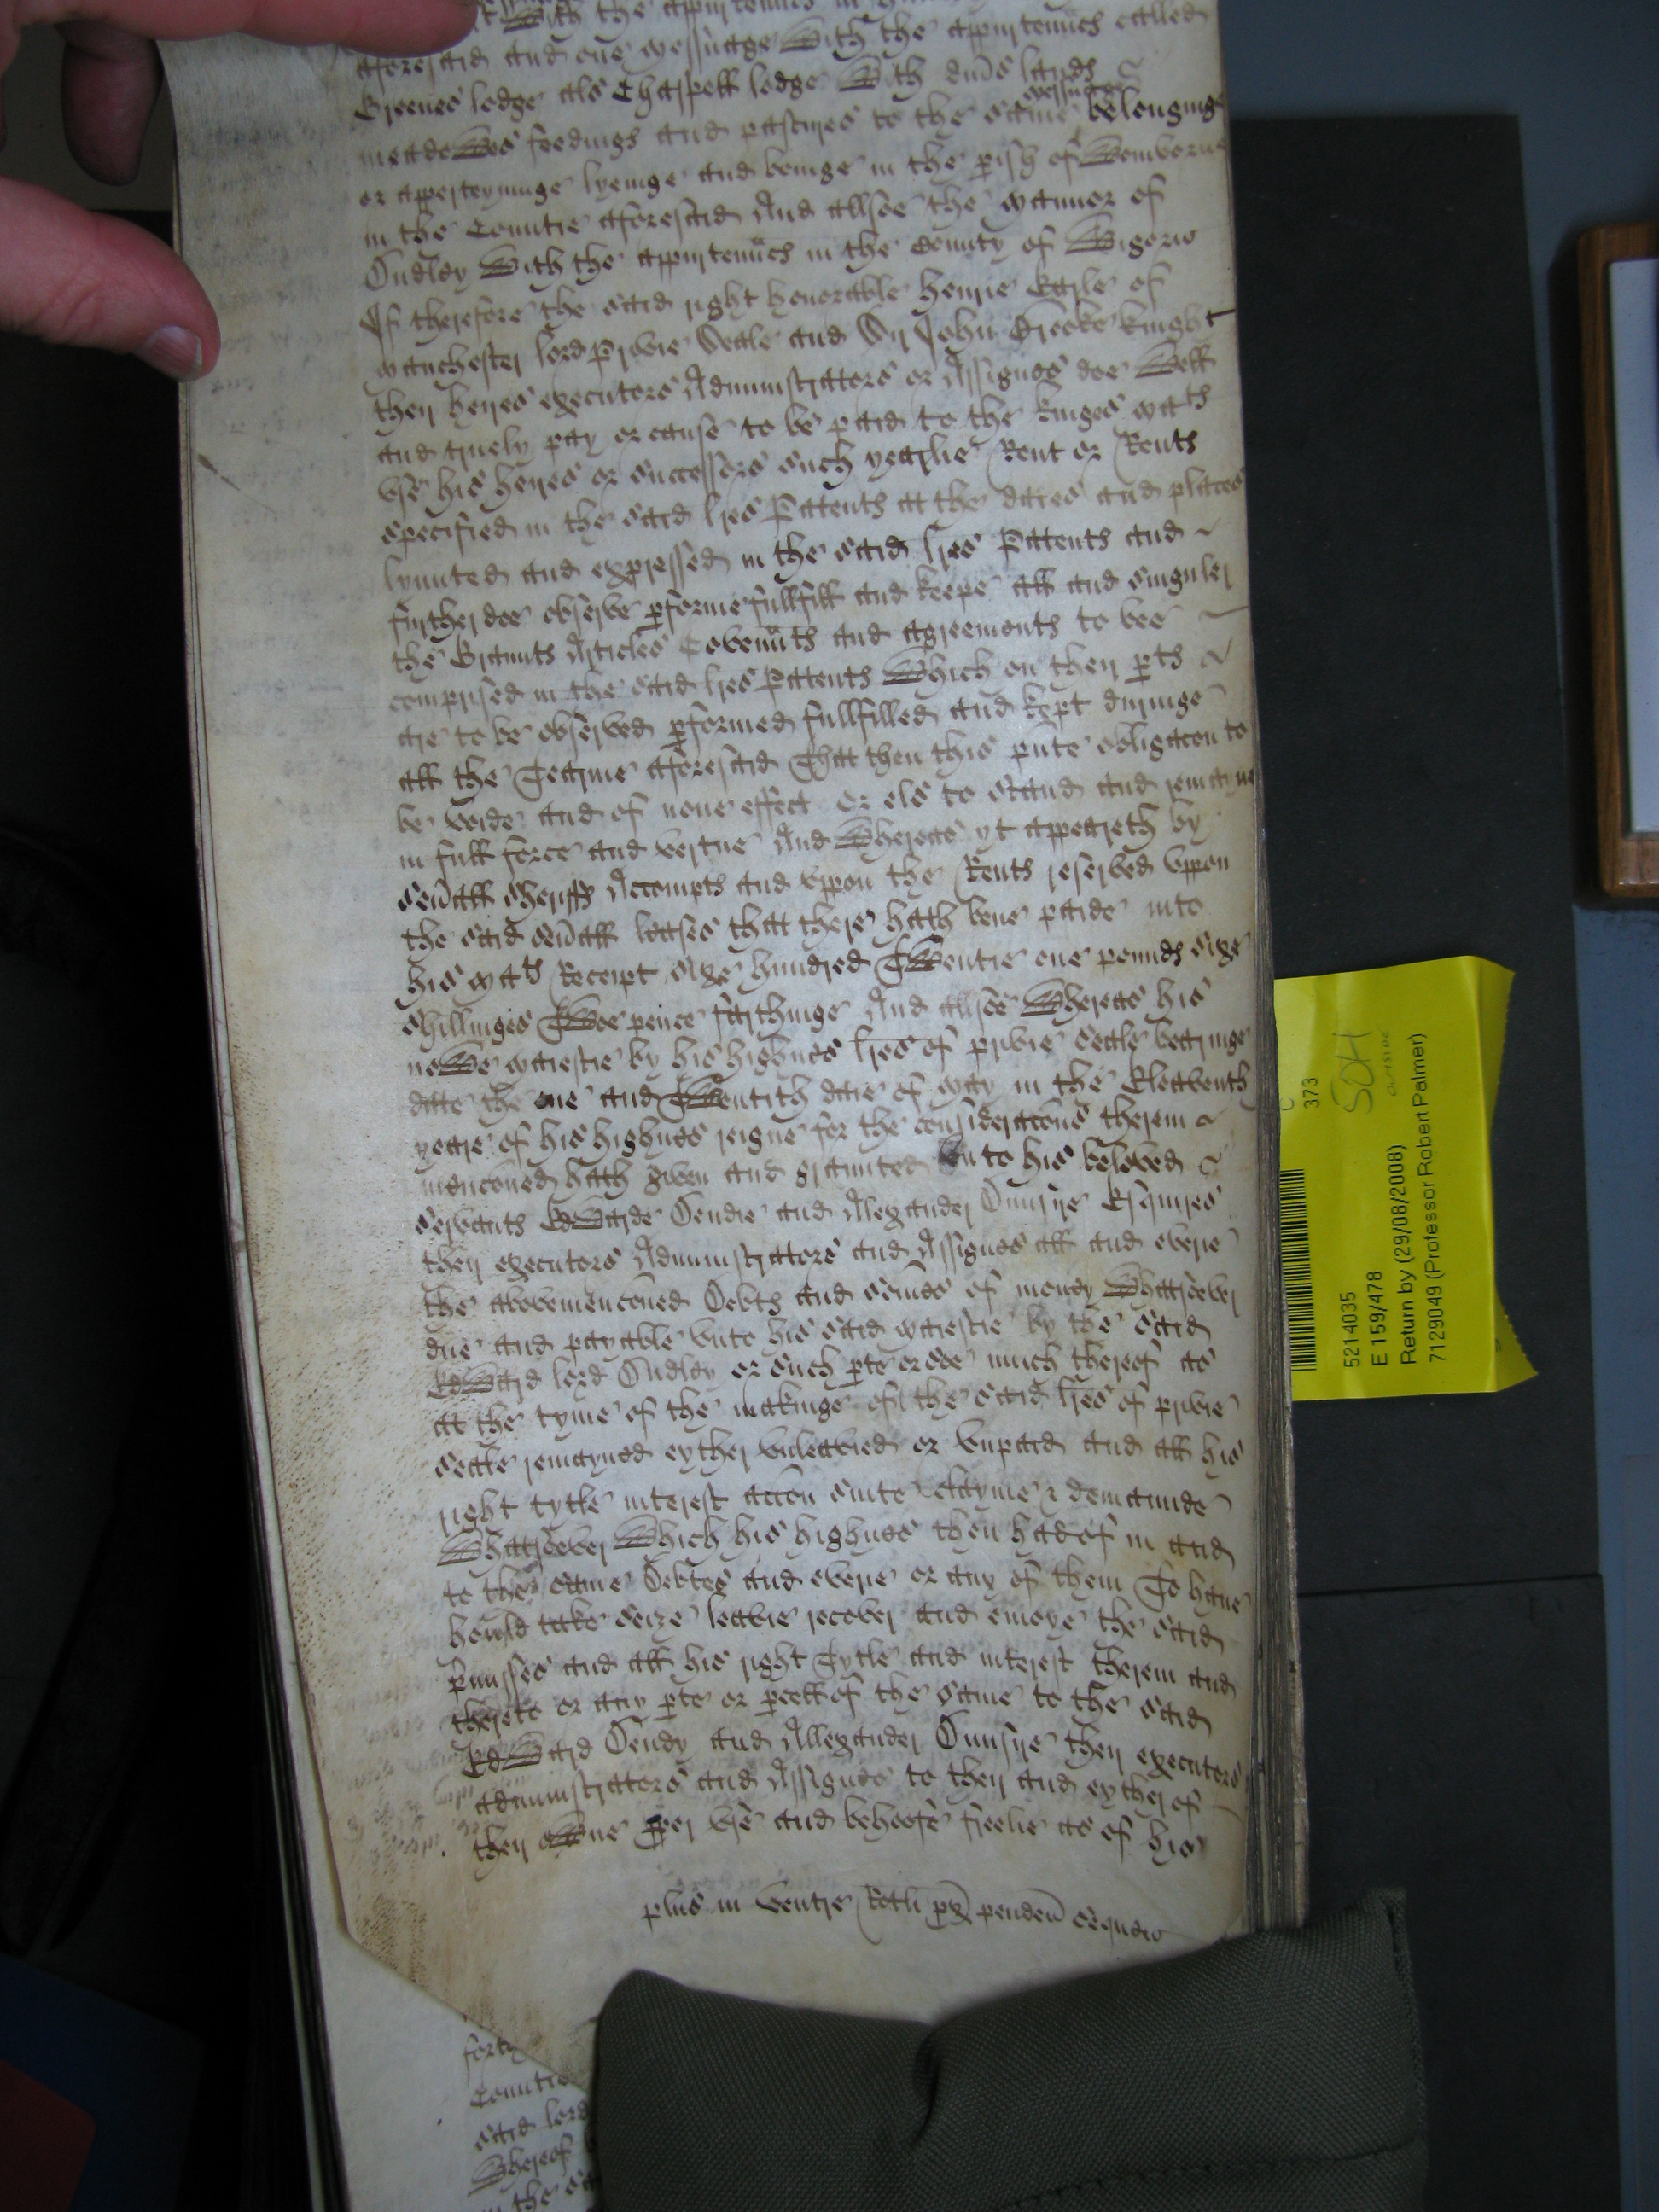 with the appurtenncs in
aforesaid and one messuage with the appurtenncs called
Greenes lodge als Chappell lodge with divs lands
messuage
meadowes feedings and pastures to the same belonginge
or apperteyninge lyeinge and beinge in the pish of Womborne
in the Countie aforesaid And allsoe the Mannor of
Dudley with the appurtenncs in the County of Wigorn
If therefore the said right honorable Henrie Earle of
Manchester lord Privie Seale and Sir John Crooke knight
their heyres executors Administrators or Assignes doe well
and truely pay or cause to be paid to the kinges Mats
use his heyres or successors such yearlie Rent or Rents
specified in the said lres Pattents att the daies and places
lymited and expressed in the said lres Pattents and
further doe observe pforme fullfill and keepe all and singuler
the Graunts Articles Covennts and agreements to bee
comprised in the said lres Pattents which on their pts
are to be observed pformed fullfilled and kept duringe
all the Tearme aforesaid That then this pnte obligacon to
be voide and of none effect or els to stand and remayne
in full force and vertue And whereas yt appeareth by
sevall sheriffs Accompts and uppon the Rents reserved uppon
the said sevall leases that there hath bene paide into
his Mats Receipt sixe hundred Twentie one pounds sixe
shillinges Twoe pence farthinge And allsoe whereas his
nowe Maiestie by his highnes lres of privie seale bearinge
date the one and Twentith daie of May in the Eleaventh
yeare of his highnes reigne for the consideracons therein
menconed hath given and graunted unto his beloved
servants Edwarde Sendie and Allexander Dunsire Esquires
their executors Administrators and Assignes all and everie
the abovemenconed Debts and somes of money whatsoever
due and payable unto his said Maiestie by the said
Edward lord Dudley or such pte or soe much thereof as
att the tyme of the makinge of the said lres of privie
seale remayned eyther unleavied or unpaid and all his
right tytle interest accon suite clayme & demaunde
whatsoever which his highnes then had of in and
to the same Debtes and everie or any of them To have
hould take seize leavie recover and enioye the said
pmisses and all his right Tytle and interest therein and
thereto or any pte or pcell of the same to the said
Edward Sendy and Allexander Dunsire their executors
administrators and Assignes to their and eyther of
their owne pper use and behoofe freelie as of his
plus in ventre Rotli px penden sequen
forty
Countie
said lord
whereof
in the sa
373
SOH
5214035
E 159/478
Return by (29/08/2008)
7129049 (Professor Robert Palmer)